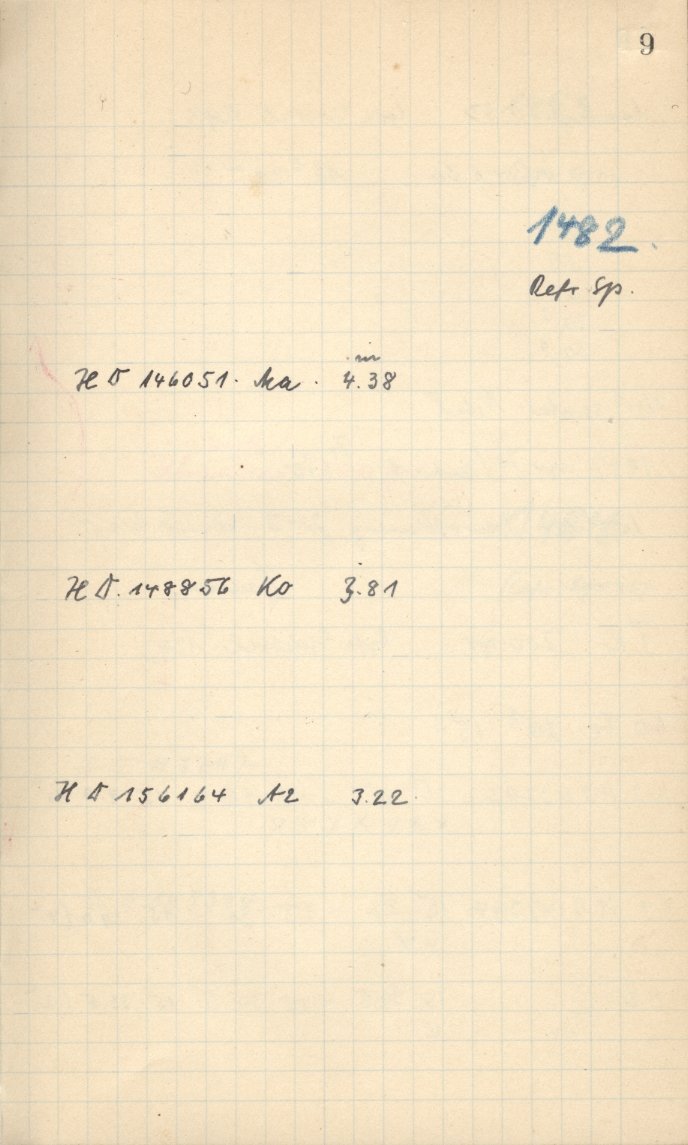 9
1482.
Refr Sp.
m
HD 146051. Ma. 4.38
HD. 148856 K0 3.81
HD 156164 A2 3.22